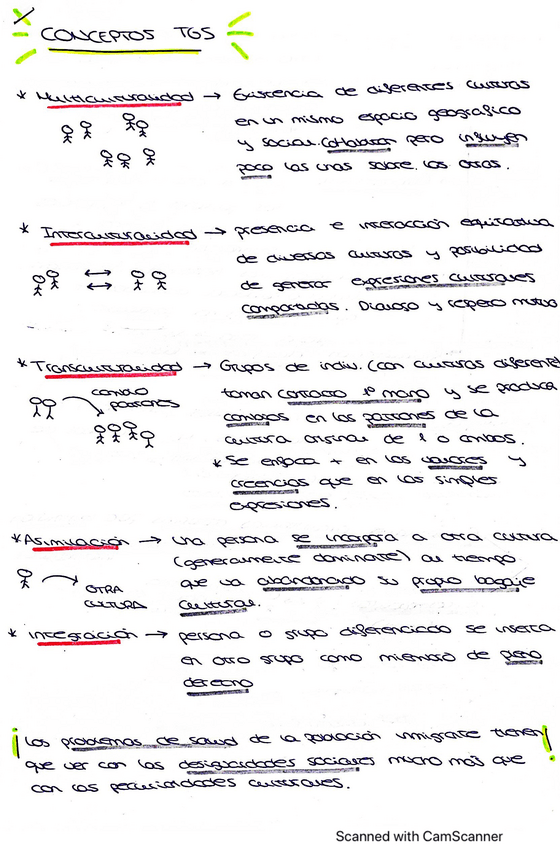 CONCEPTOS TGS
* Multiculturalidad → Existencia de diferentes culturas
en un mismo espacio geográfico
y social. Cohabitan pero influyen
poco las unas sobre las otras.
* Interculturalidad → presencia e interacción equitativa
de diversas culturas y posibilidad
de generar expresiones culturales
compartidas. Dialogo y respeto mutuo
* Transculturalidad → Grupos de indiv. (con culturas diferente
toman contacto 1ª mano y se produce
cambios en los patrones de la
cultura original de 1 o ambos.
cambio
patrones
* Se enfoca + en los valores y
creencias que en las simples
expresiones.
* Asimilación → una persona se incorpora a otra cultura
(generalmente dominante) al tiempo
que va abandonado su propio bagaje
cultural.
OTRA
CULTURA
* integración → persona o grupo diferenciado se inserta
en otro grupo como miembro de pleno
derecho
¡Los problemas de salud de la población inmigrante tienen!
que ver con las desigualdades sociales mucho más que
con las peculiaridades culturales.
Scanned with CamScanner